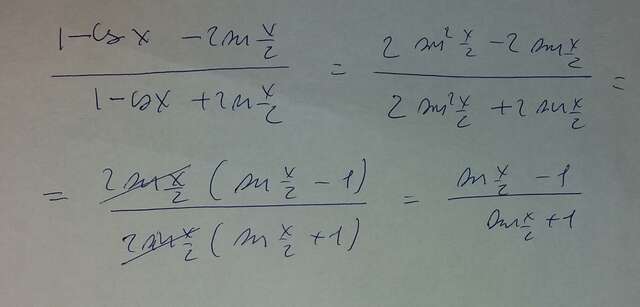 (1-cos x - 2 sin x/2)/(1-cos x + 2 sin x/2) = (2 sin² x/2 - 2 sin x/2)/(2 sin² x/2 + 2 sin x/2) =
= (2 sin x/2 (sin x/2 - 1))/(2 sin x/2 (sin x/2 + 1)) = (sin x/2 - 1)/(sin x/2 + 1)